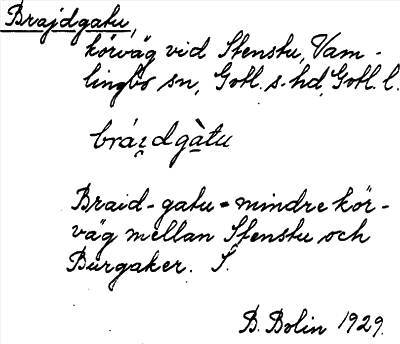 Brajdgatu,
körväg vid Stenstu, Vam-
lingbo sn, Gotl. s. hd, Gotl. l.
brái̯dgàtu
Braid-gatu = mindre kör-
väg mellan Stenstu och
Burgaker. S.
B. Bolin 1929.